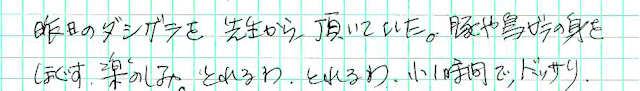 昨日のダシガラを先生から頂いていた。豚や鳥ガラの身を
ほぐす.楽のしみ。とれるわ.とれるわ.小1時間で,ドッサリ.